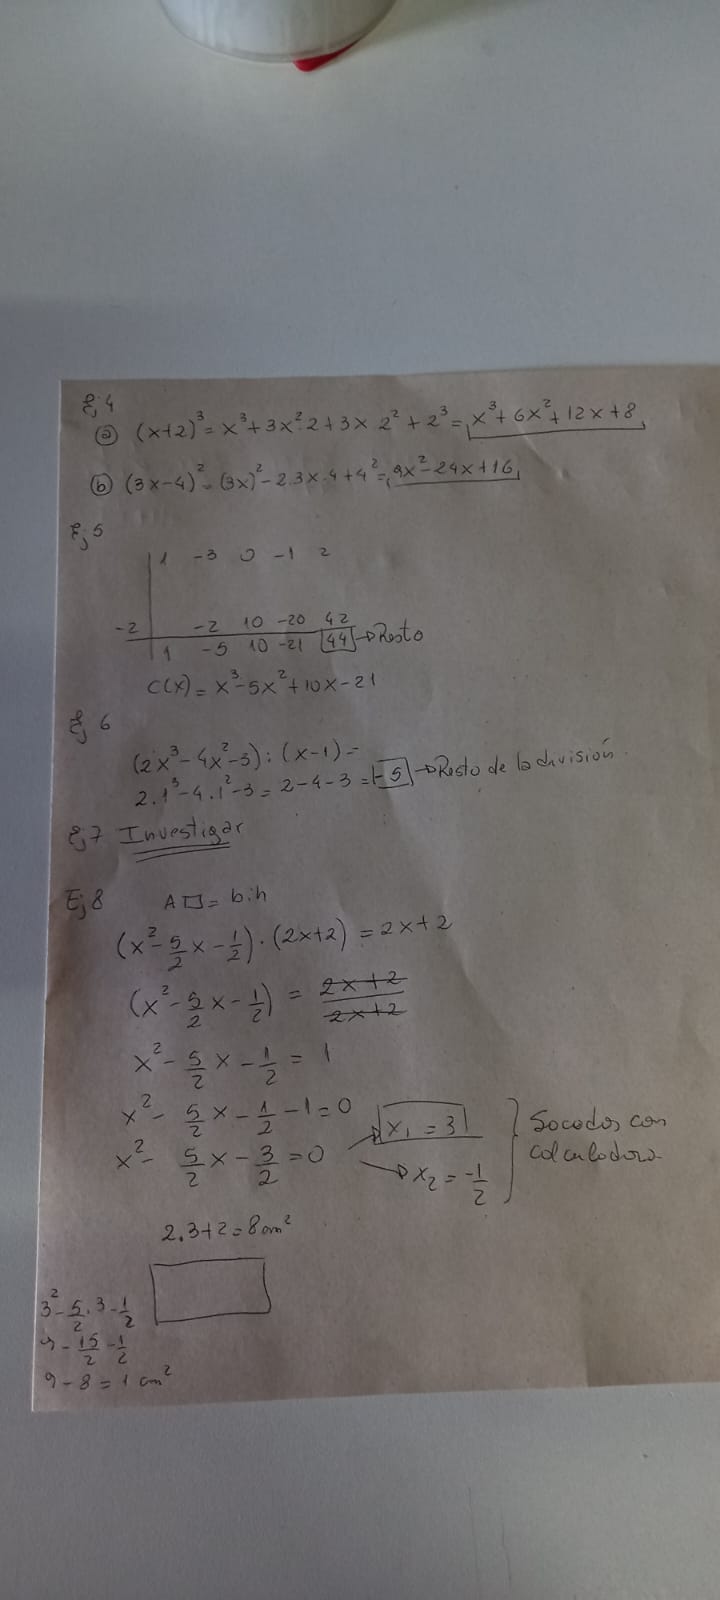 Ej 4
(a) (x+2)³ = x³ + 3x²·2 + 3x 2² + 2³ = x³ + 6x² + 12x + 8
(b) (3x-4)² = (3x)² - 2.3x.4 + 4² = 9x² - 24x + 16
Ej 5
1 -3 0 -1 2
-2 -2 10 -20 42
1 -5 10 -21 44 → Resto
C(x) = x³ - 5x² + 10x - 21
Ej 6
(2x³ - 4x² - 3) : (x-1) =
2.1³ - 4.1² - 3 = 2 - 4 - 3 = -5 → Resto de la división.
Ej 7 Investigar
Ej 8 A▭ = b.h
(x² - 5/2 x - 1/2) · (2x+2) = 2x+2
(x² - 5/2 x - 1/2) = 2x+2/2x+2
x² - 5/2 x - 1/2 = 1
x² - 5/2 x - 1/2 - 1 = 0
x² - 5/2 x - 3/2 = 0 → x₁ = 3 → x₂ = -1/2 } Sacadas con calculadora
2.3+2 = 8 cm²
3² - 5/2 . 3 - 1/2
9 - 15/2 - 1/2
9 - 8 = 1 cm²